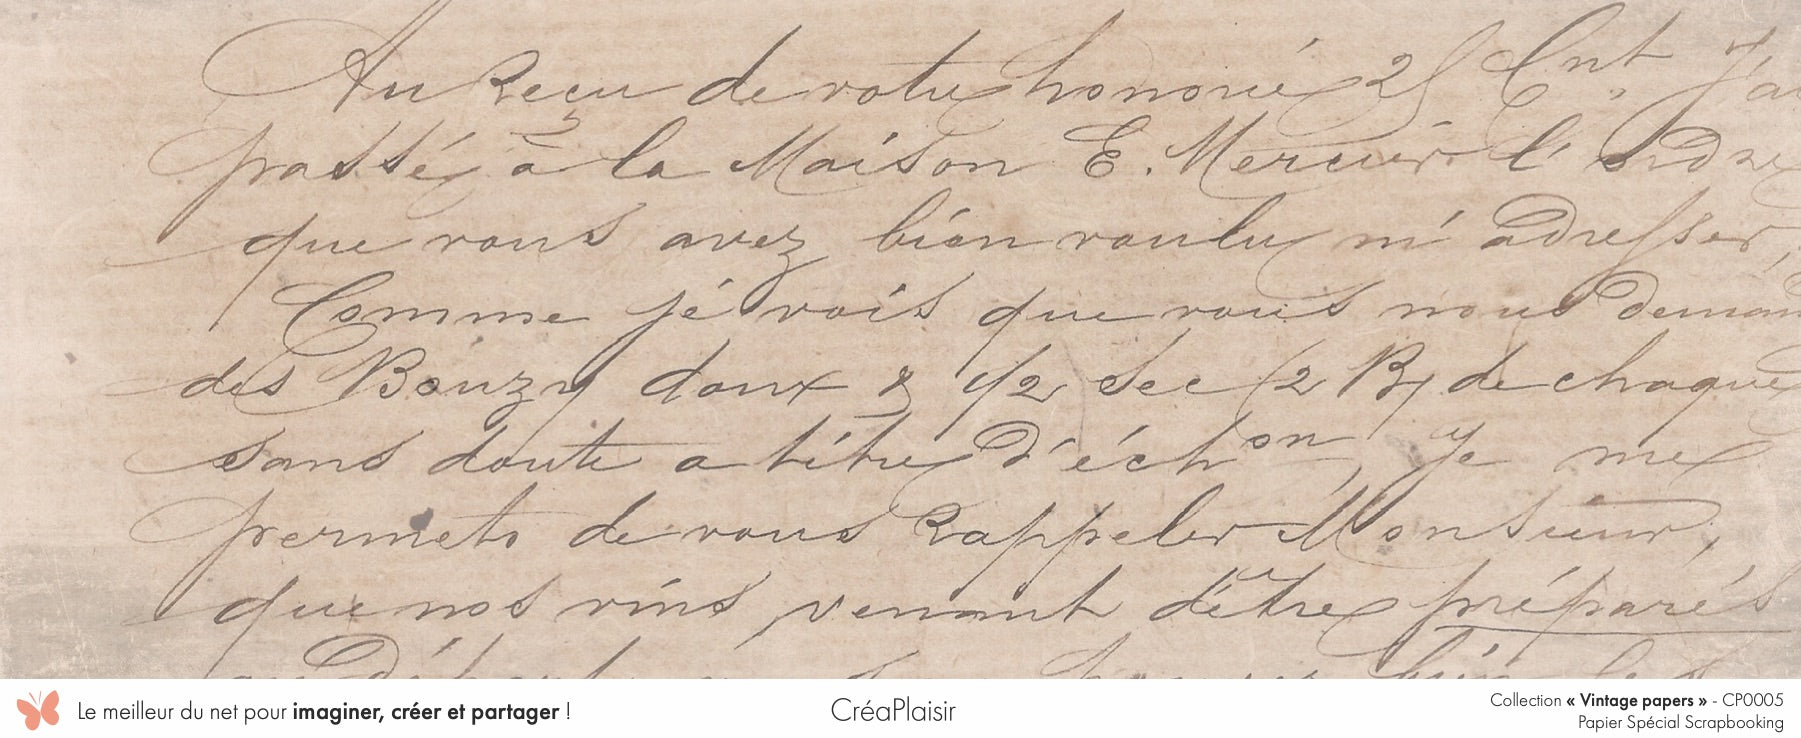 Au Reçu de votre honorée 25 Cnt. J'ai
passé à la Maison E. Mercier l'ordre
que vous avez bien voulu m'adresser,
Comme je vois que vous nous deman
des Bouzy doux & 1/2 sec (2 B/ de chaque
sans doute a titre d'échon, Je me
permets de vous Rappeler Monsieur,
que nos vins venant d'être préparés
Le meilleur du net pour imaginer, créer et partager !
CréaPlaisir
Collection « Vintage papers » - CP0005
Papier Spécial Scrapbooking